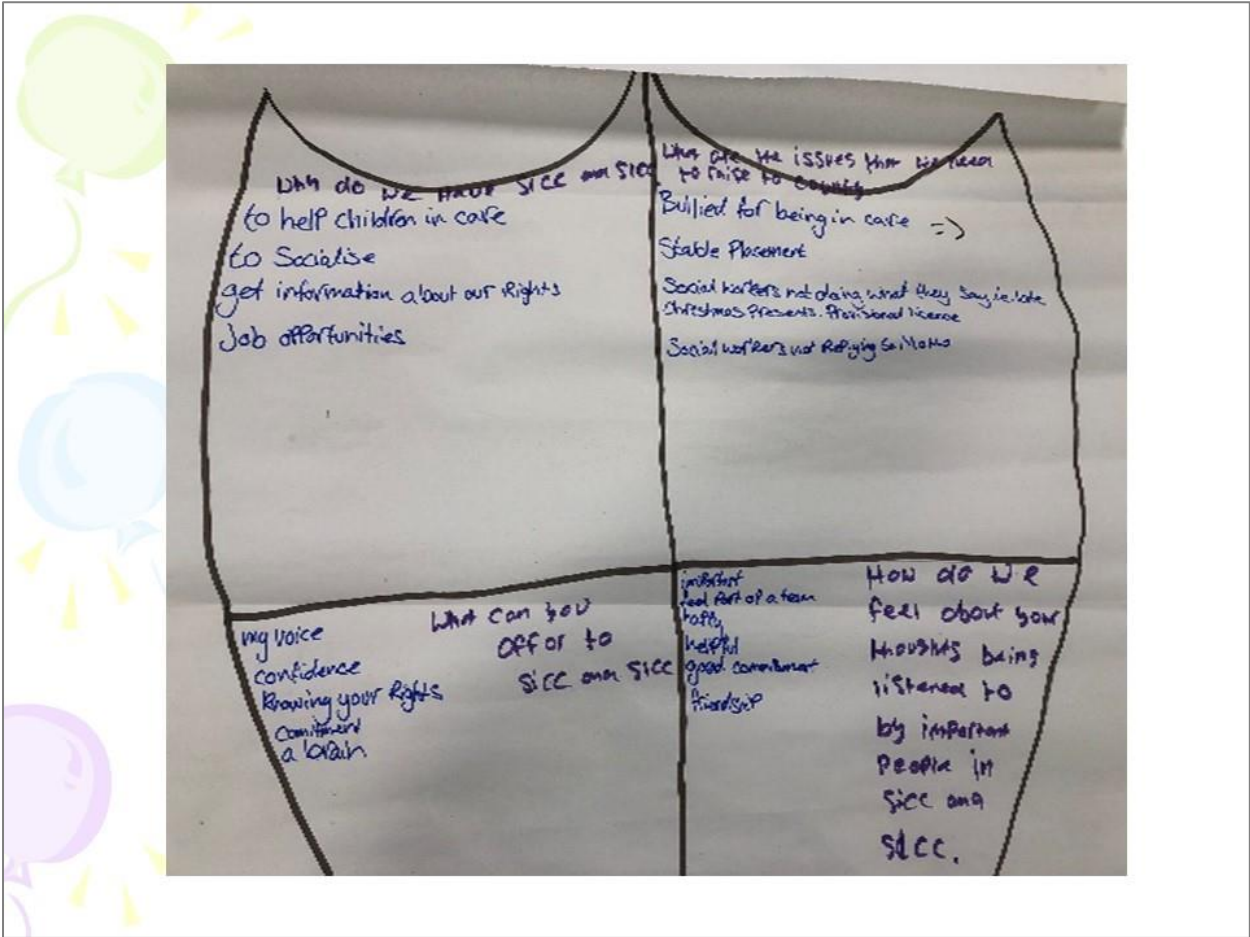 Why do we have SICC and SICC
to help children in care
to Socialise
get information about our Rights
Job opportunities
What are the issues that we need
to raise to county
Bullied for being in care =)
Stable Placement
Social workers not doing what they say i.e. late
Christmas Presents. Provisional licence
Social workers not Replying to
my voice
confidence
knowing your Rights
Comitment
a brain
What can you
offor to
SICC and SICC
important
feel Part of a team
helpful
good commitment
friendship
How do we
feel about your
thoughts being
listened to
by important
People in
SICC and
SICC.